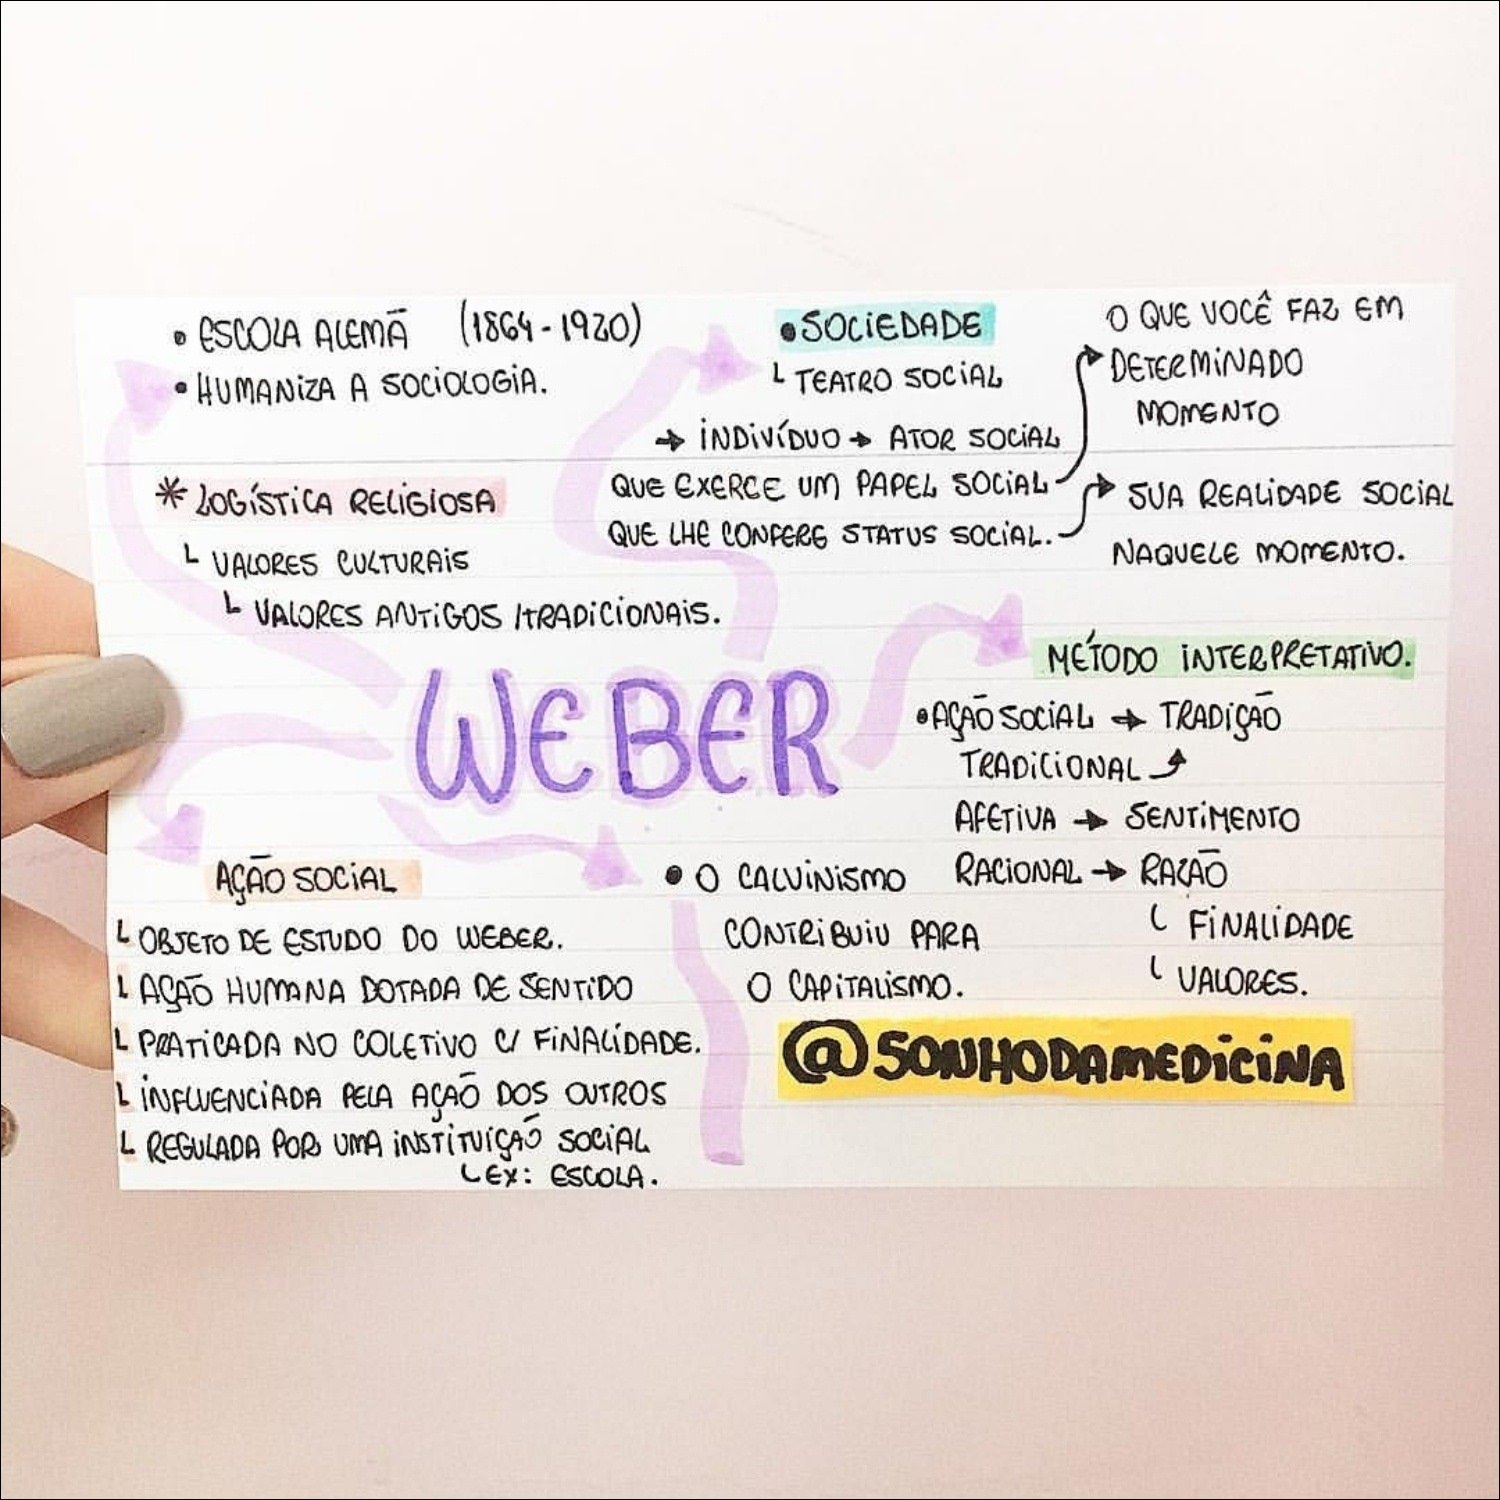 • ESCOLA ALEMÃ (1864-1920)
• HUMANIZA A SOCIOLOGIA.
* LOGÍSTICA RELIGIOSA
└ VALORES CULTURAIS
└ VALORES ANTIGOS /TRADICIONAIS.
• SOCIEDADE
└ TEATRO SOCIAL
→ INDIVÍDUO → ATOR SOCIAL
QUE EXERCE UM PAPEL SOCIAL
QUE LHE CONFERE STATUS SOCIAL.
O QUE VOCÊ FAZ EM
DETERMINADO
MOMENTO
SUA REALIDADE SOCIAL
NAQUELE MOMENTO.
WEBER
MÉTODO INTERPRETATIVO.
• AÇÃO SOCIAL → TRADIÇÃO
TRADICIONAL
AFETIVA → SENTIMENTO
RACIONAL → RAZÃO
└ FINALIDADE
└ VALORES.
AÇÃO SOCIAL
└ OBJETO DE ESTUDO DO WEBER.
└ AÇÃO HUMANA DOTADA DE SENTIDO
└ PRATICADA NO COLETIVO C/ FINALIDADE.
└ INFLUENCIADA PELA AÇÃO DOS OUTROS
└ REGULADA POR UMA INSTITUIÇÃO SOCIAL
└ EX: ESCOLA.
• O CALVINISMO
CONTRIBUIU PARA
O CAPITALISMO.
@SONHODAMEDICINA